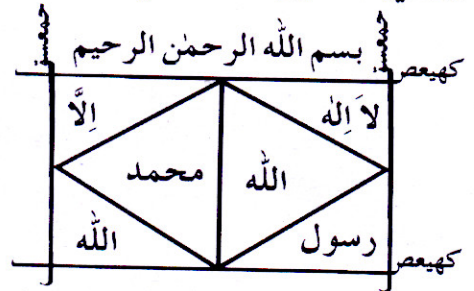 بسم الله الرحمٰن الرحيم
كهيعص
لاَ اِلٰه اِلَّا
الله محمد
رسول الله
كهيعص